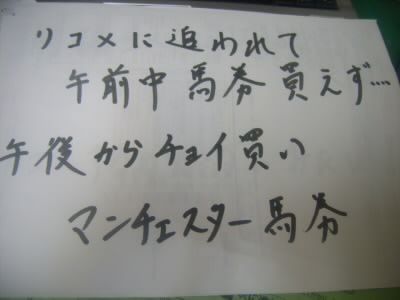 リコメに追われて
午前中馬券買えず‥‥
午後からチョイ買い
マンチェスター馬券